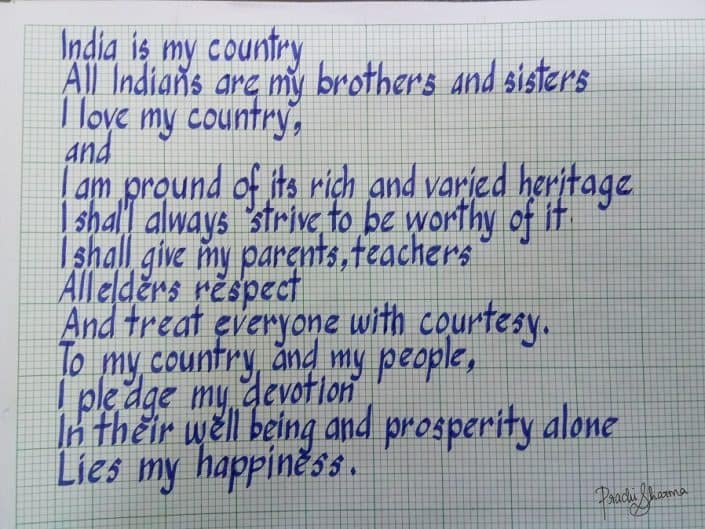 India is my country
All Indians are my brothers and sisters
I love my country,
and
I am pround of its rich and varied heritage
I shall always strive to be worthy of it.
I shall give my parents, teachers
All elders respect
And treat everyone with courtesy.
To my country and my people,
I pledge my devotion
In their well being and prosperity alone
Lies my happiness.
Prachi Sharma